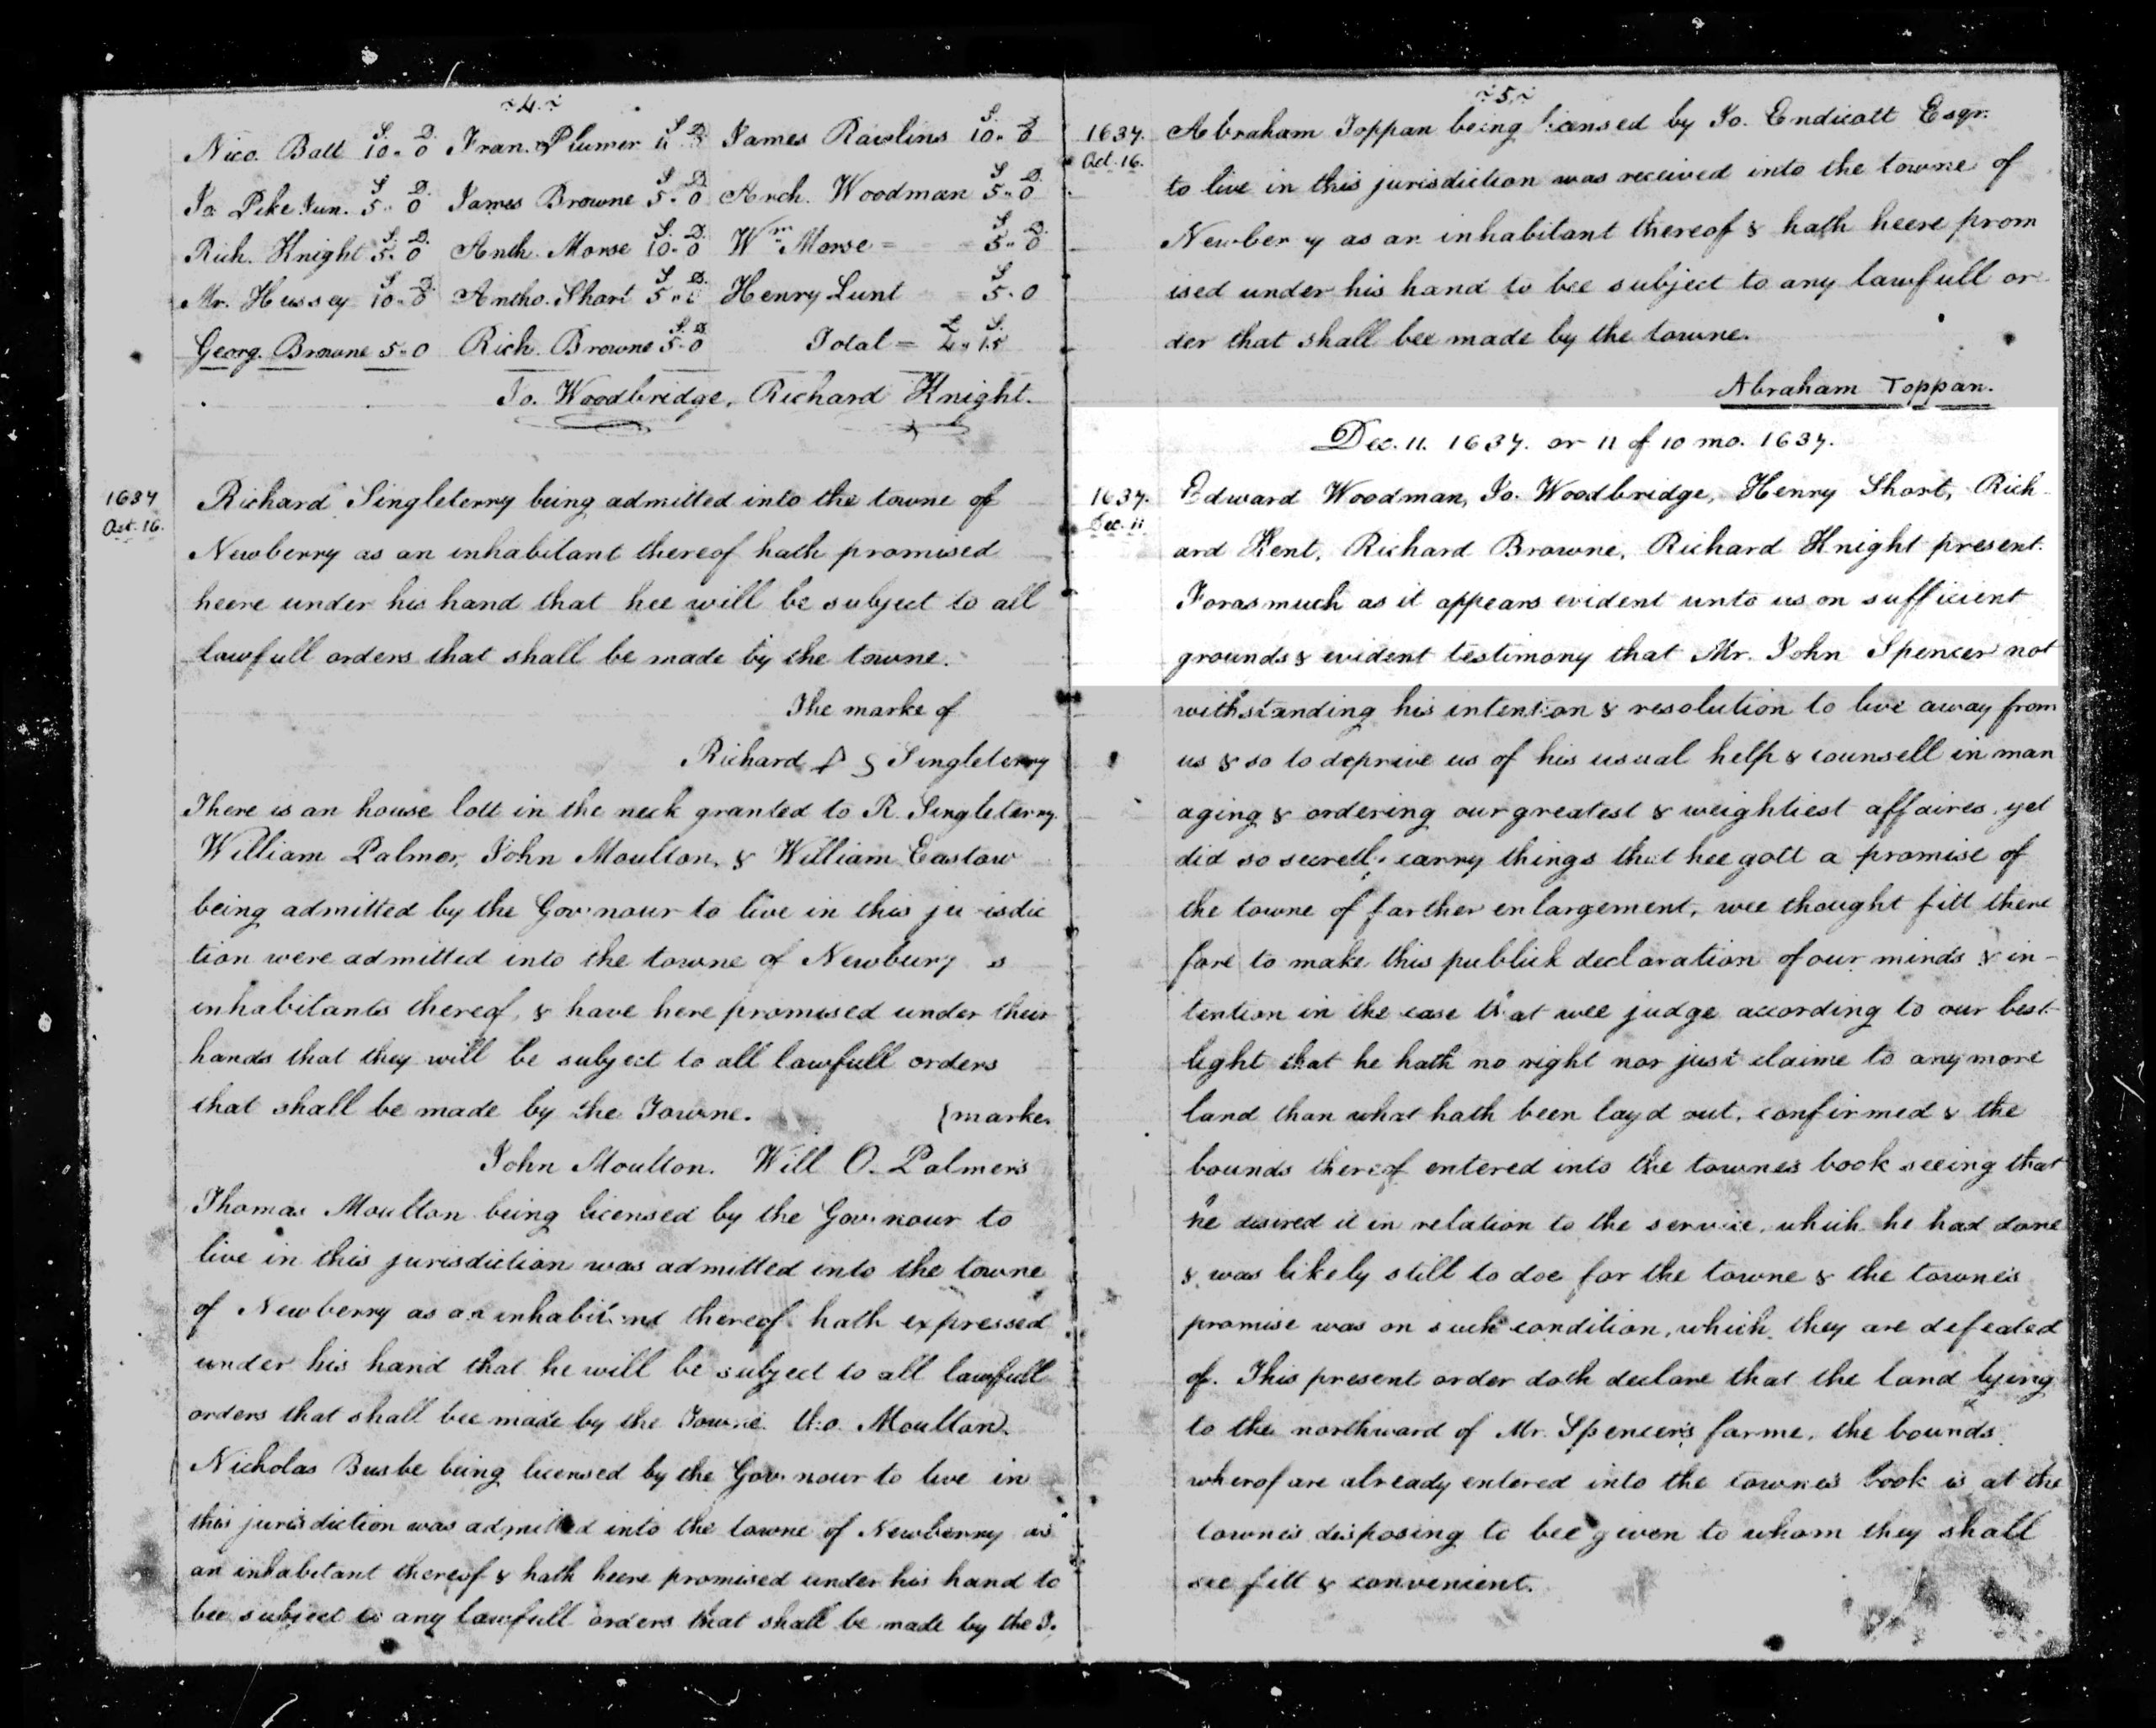 ~4.~
Nico. Batt 10.. 0 Fran. Plumer James Rawlins 10.. 0
Jo. Pike Jun. 5.. 0 James Browne 5.. 0 Arch. Woodman 5.. 0
Rich. Knight 5.. 0 Anth. Morse 10.. 0 Wm Morse = 5.. 0
Mr. Hussey 10.. 0 Antho. Short 5.. Henry Lunt 5.. 0
Georg. Browne 5.. 0 Rich. Browne 5.. 0 Total = 4.. 15
Jo. Woodbridge, Richard Knight.
1637
Oct. 16.
Richard Singleterry being admitted into the towne of
Newberry as an inhabitant thereof hath promised
heere under his hand that hee will be subject to all
lawfull orders that shall be made by the towne.
The marke of
Richard Singleterry
There is an house lott in the neck granted to R. Singleterry.
William Palmer, John Moulton, & William Eastow
being admitted by the Gov'nour to live in this ju isdic
tion were admitted into the towne of Newbury s
inhabitants thereof, & have here promised under their
hands that they will be subject to all lawfull orders
that shall be made by the Towne. {marke.
John Moulton. Will O. Palmers
Thomas Moulton being licensed by the Gov'nour to
live in this jurisdiction was admitted into the towne
of Newberry as an inhabitant thereof hath expressed
under his hand that he will be subject to all lawfull
orders that shall bee made by the Towne. tho. Moulton.
Nicholas Busbe being licensed by the Gov'nour to live in
this jurisdiction was admitted into the towne of Newberry as
an inhabitant thereof & hath heere promised under his hand to
bee subject to any lawfull orders that shall be made by the T.
~5.~
1637.
Oct. 16.
Abraham Toppan being licensed by Jo. Endicott Esqr.
to live in this jurisdiction was received into the towne of
Newberry as an inhabitant thereof & hath heere prom
ised under his hand to bee subject to any lawfull or
der that shall bee made by the towne.
Abraham Toppan.
Dec. 11. 1637. or 11 of 10 mo. 1637.
1637.
Dec. 11
Edward Woodman, Jo. Woodbridge, Henry Short, Rich
ard Kent, Richard Browne, Richard Knight present.
Forasmuch as it appears evident unto us on sufficient
grounds & evident testimony that Mr. John Spencer not
withstanding his intention & resolution to live away from
us & so to deprive us of his usual help & counsell in man
aging & ordering our greatest & weightiest affaires, yet
did so secretly carry things that hee gott a promise of
the towne of farther enlargement, wee thought fitt there
fore to make this publick declaration of our minds & in-
tention in the case that wee judge according to our best
light that he hath no right nor just claime to any more
land than what hath been layd out, confirmed & the
bounds thereof entered into the townes book seeing that
he desired it in relation to the service, which he had done
& was likely still to doe for the towne & the townes
promise was on such condition, which they are defeated
of. This present order doth declare that the land lying
to the northward of Mr. Spencer's farme, the bounds
wherof are already entered into the townes book is at the
townes disposing to bee given to whom they shall
see fitt & convenient.